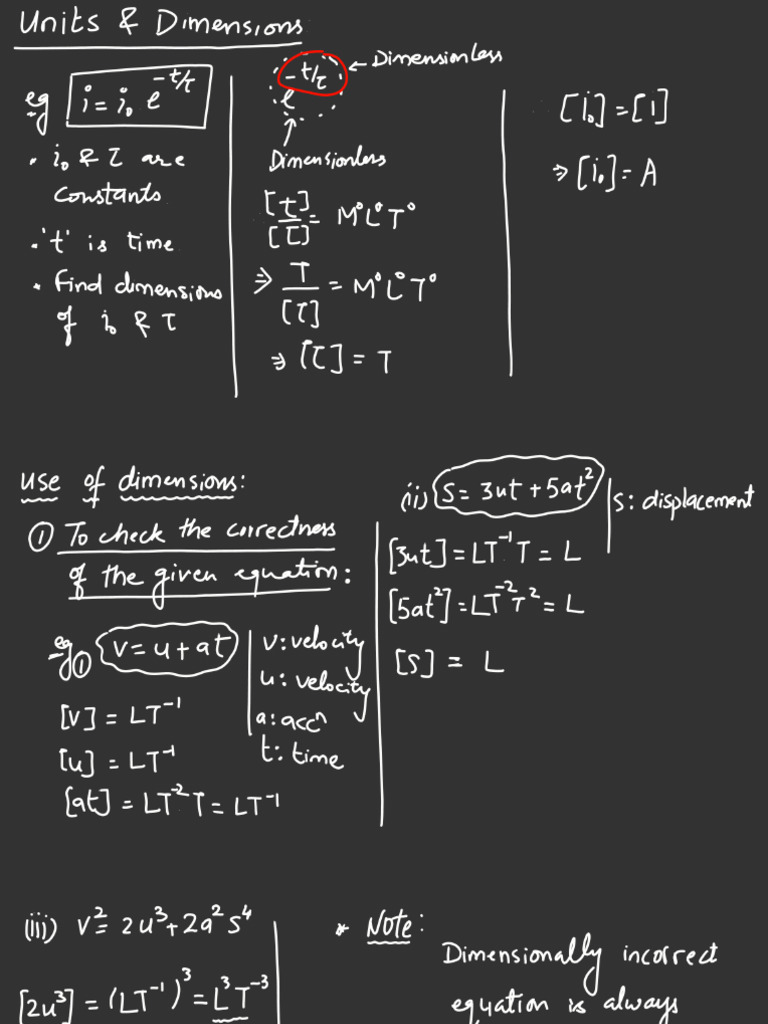 Units & Dimensions
eg i = i₀ e^(-t/τ)
• i₀ & τ are
constants
• 't' is time
• Find dimensions
of i₀ & τ
e^(-t/τ) ← Dimensionless
Dimensionless
[t]/[τ] = M⁰L⁰T⁰
⇒ T/[τ] = M⁰L⁰T⁰
⇒ [τ] = T
[i₀] = [i]
⇒ [i₀] = A
Use of dimensions:
① To check the correctness
of the given equation:
eg ① v = u + at
v: velocity
u: velocity
a: accⁿ
t: time
[v] = LT⁻¹
[u] = LT⁻¹
[at] = LT⁻²T = LT⁻¹
(ii) S = 3ut + 5at²
s: displacement
[3ut] = LT⁻¹T = L
[5at²] = LT⁻²T² = L
[S] = L
(iii) v² = 2u³ + 2a²s⁴
[2u³] = (LT⁻¹)³ = L³T⁻³
* Note:
Dimensionally incorrect
equation is always